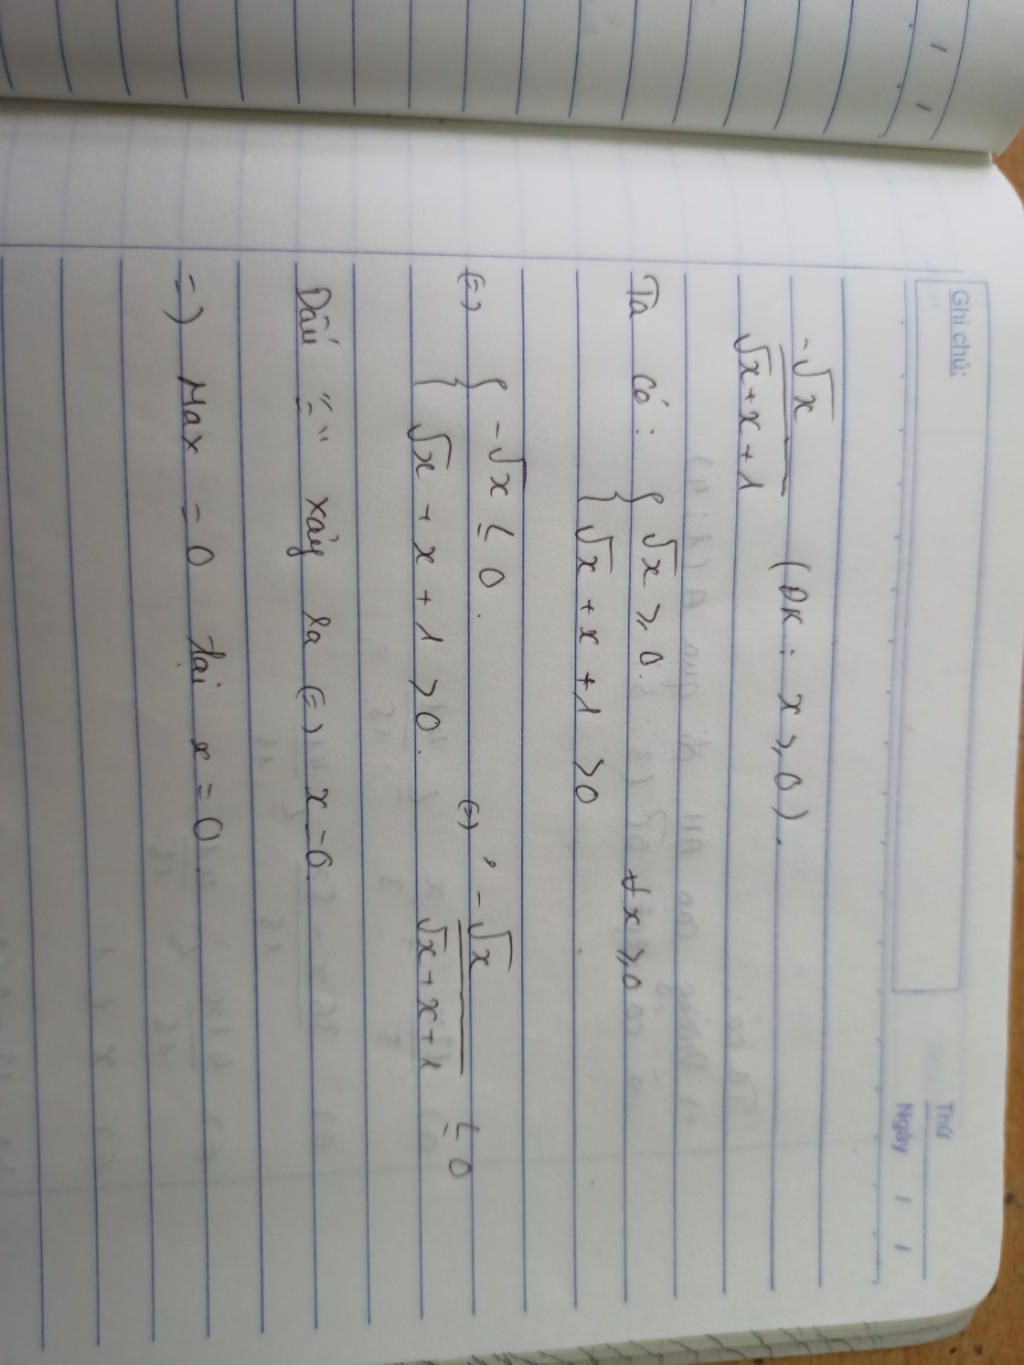 Ghi chú:
Thứ
Ngày / /
-√x / (√x+x+1) (ĐK: x ≥ 0).
Ta có: { √x ≥ 0. ∀x ≥ 0
{ √x + x + 1 > 0
(=) { -√x ≤ 0. (=) -√x / (√x+x+1) ≤ 0
{ √x + x + 1 > 0.
Dấu "=" xảy ra (=) x = 0.
=) Max = 0 tại x = 0